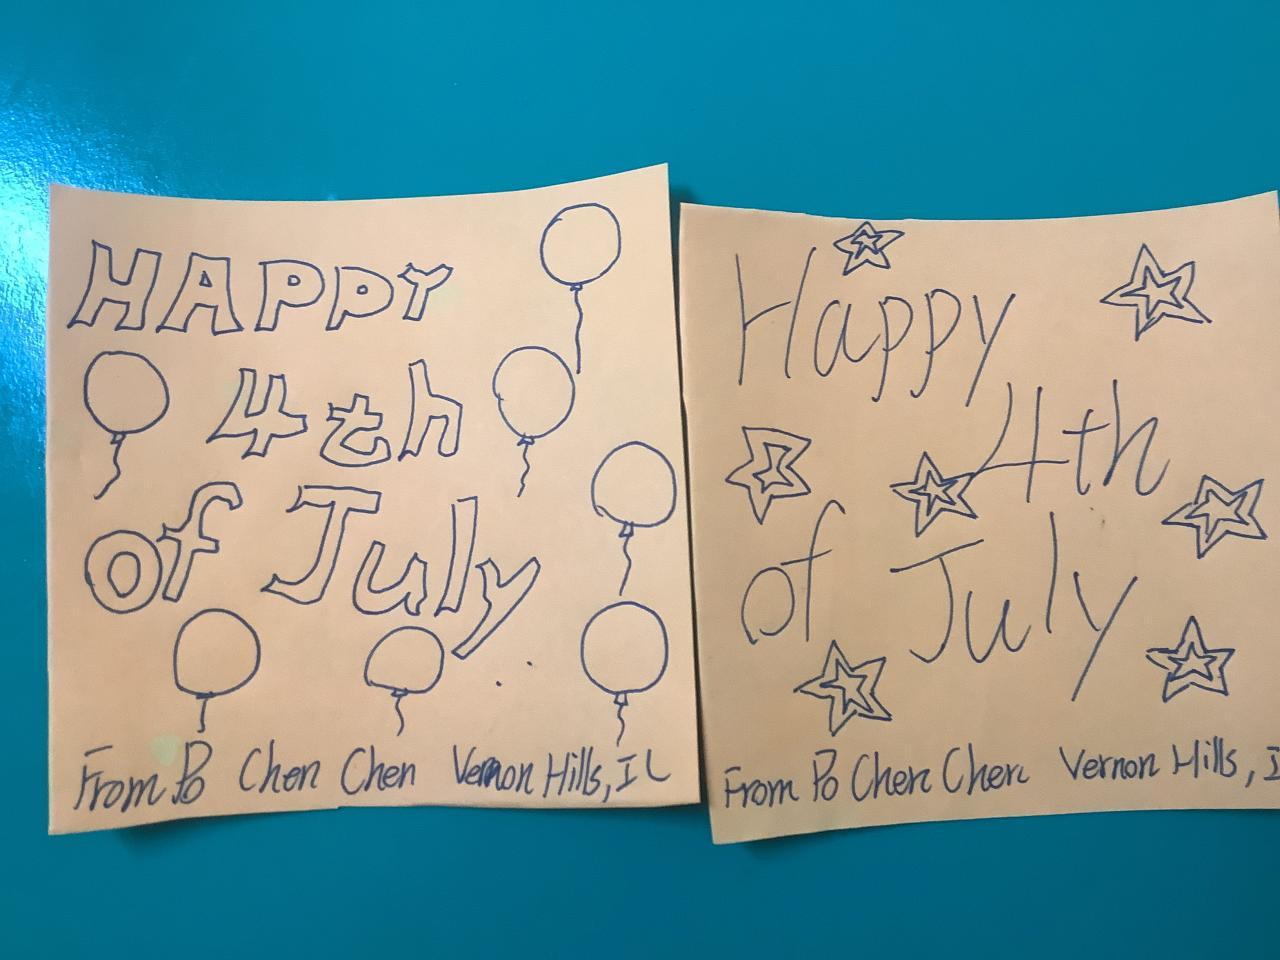 HAPPY
4th
of July
From Po Chen Chen Vernon Hills, IL
Happy
4th
of July
From Po Chen Chen Vernon Hills, I